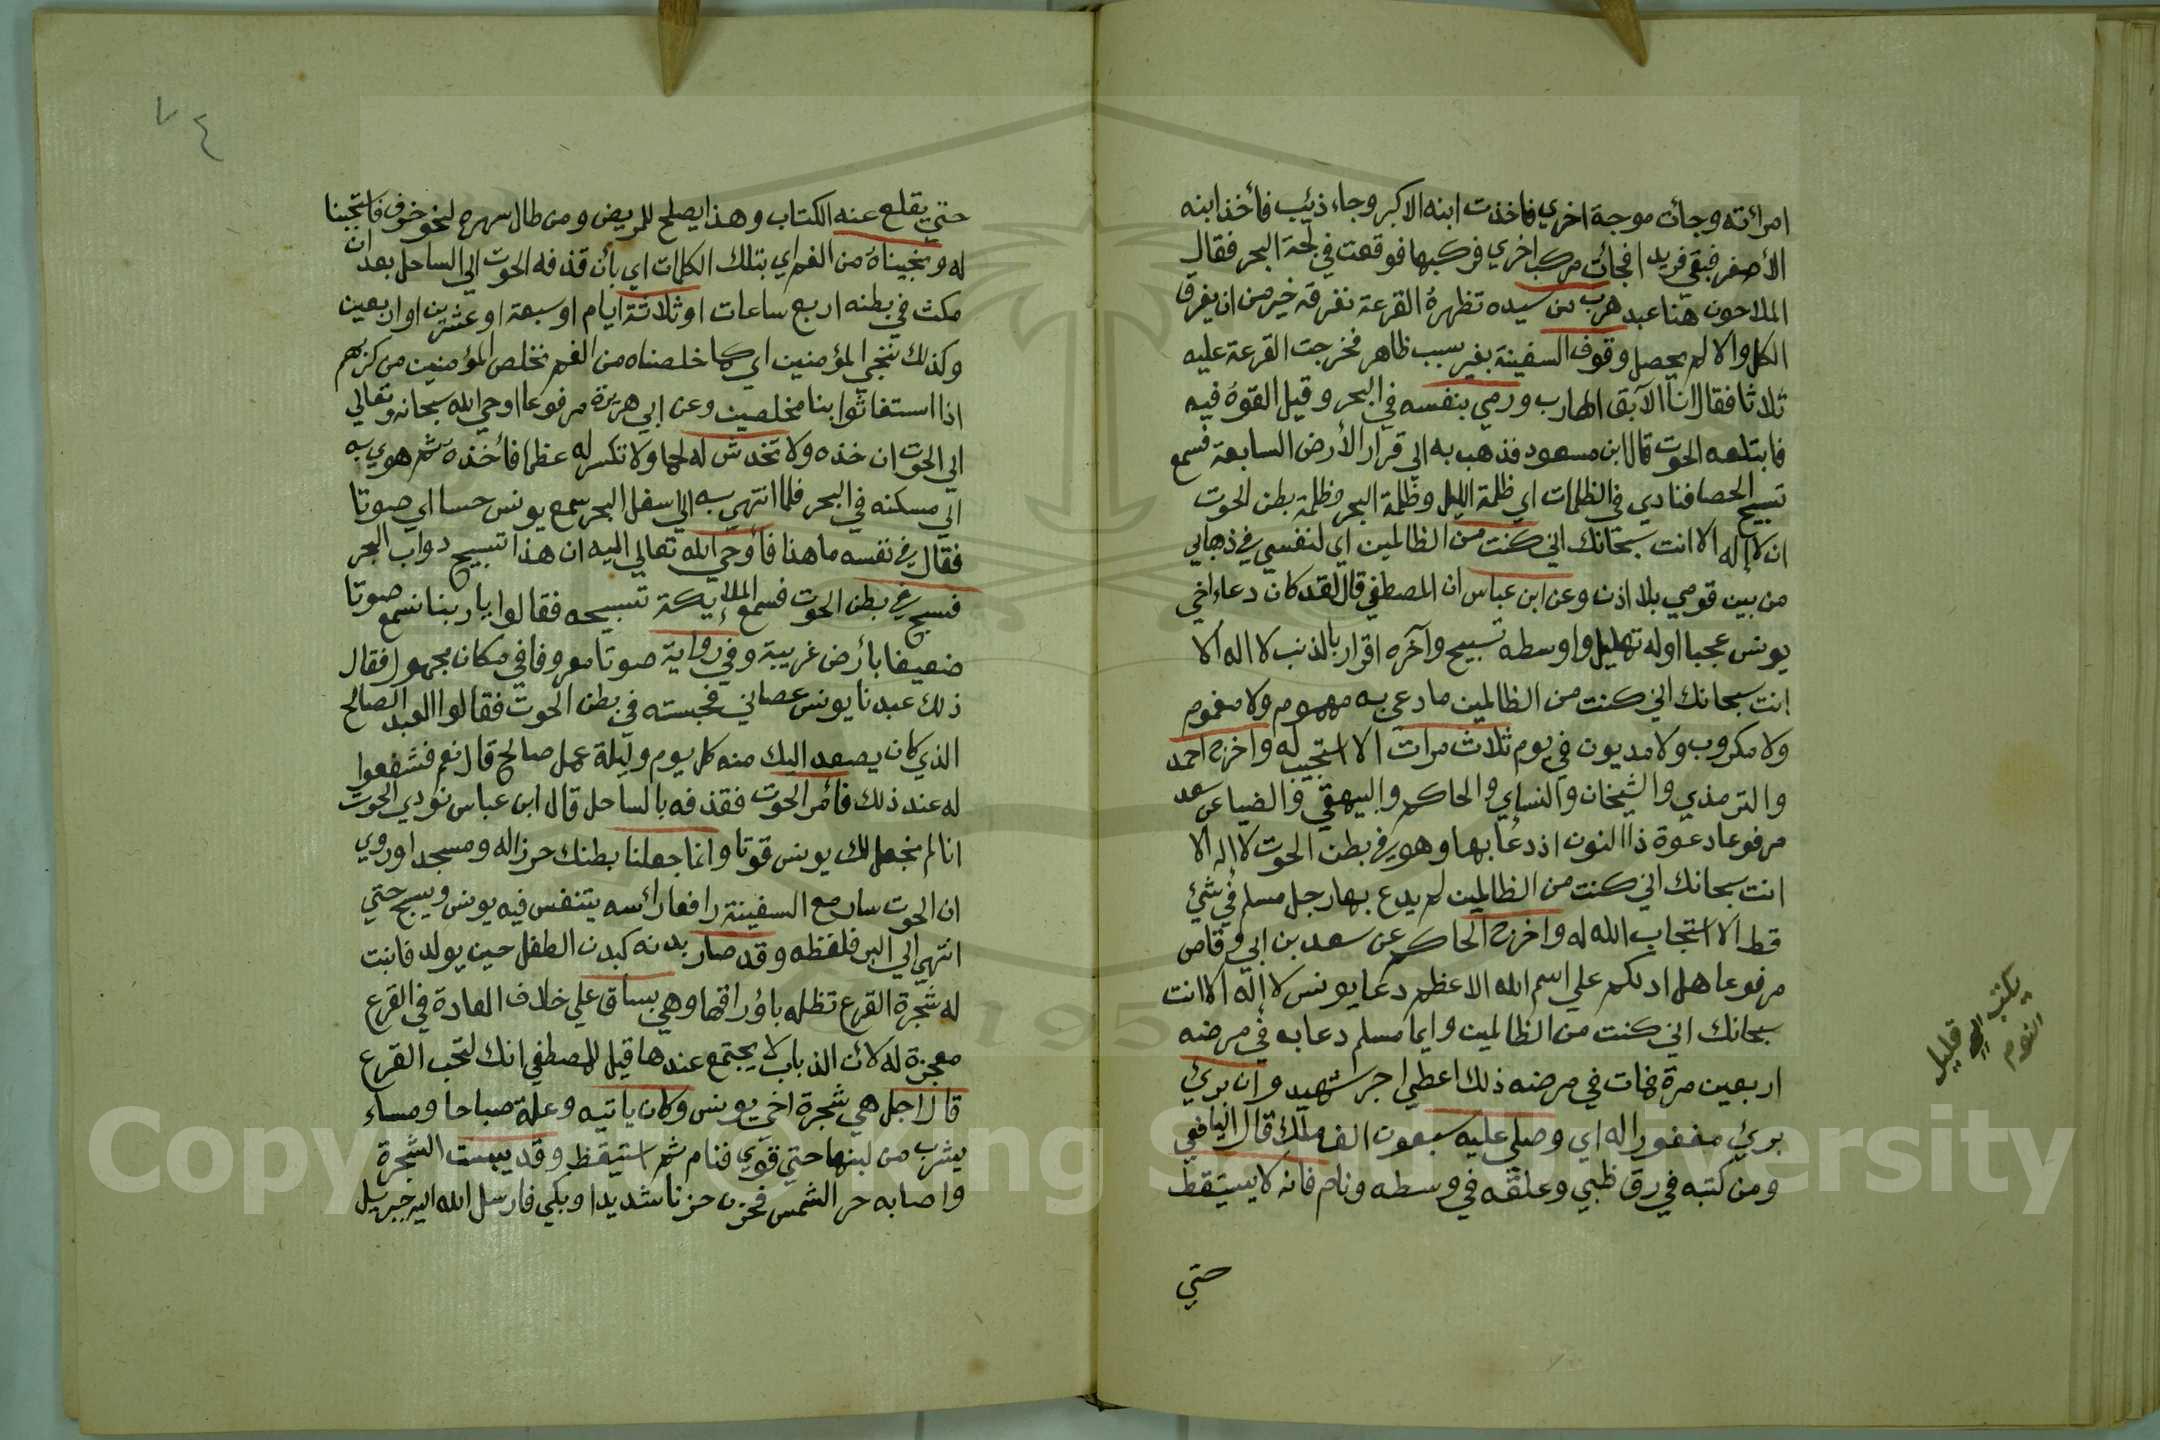 امرأته وجأت موجة اخري فاخذت ابنه الاكبر وجاء ذئب فأخذ ابنه
الأصغر فبقي فريدا فجأت مركب اخري فركبها فوقعت في لجة البحر فقال
الملاحون هنا عبد هرب من سيده تظهره القرعة نغرقه خير من ان يغرق
الكل والا لم يحصل وقوف السفينة بغير سبب ظاهر فخرجت القرعة عليه
ثلاثا فقال انا الآبق الهارب ورمي بنفسه في البحر وقيل القوه فيه
فابتلعه الحوت قال ابن مسعود فذهب به الي قرار الأرض السابعة فسمع
تسبيح الحصا فنادي في الظلمات اي ظلمة الليل وظلمة البحر وظلمة بطن الحوت
ان لا إله الا انت سبحانك اني كنت من الظالمين اي لنفسي في ذهابي
من بين قومي بلا اذن وعن ابن عباس ان المصطفي قال لقد كان دعاء اخي
يونس عجبا اوله تهليل واوسطه تسبيح وآخره اقرار بالذنب لا اله الا
انت سبحانك اني كنت من الظالمين ما دعي به مهموم ولا مغموم
ولا مكروب ولا مديون في يوم ثلاث مرات الا استجيب له واخرج احمد
والترمذي والشيخان والنساي والحاكم والبيهقي والضيا عن سعد
مرفوعا دعوة ذا النون اذ دعا بها وهو في بطن الحوت لا اله الا
انت سبحانك اني كنت من الظالمين لم يدع بها رجل مسلم في شئ
قط الا استجاب الله له واخرج الحاكم عن سعد بن ابي وقاص
مرفوعا هل ادلكم علي اسم الله الاعظم دعا يونس لا إله الا انت
سبحانك اني كنت من الظالمين وايما مسلم دعا به في مرضه
اربعين مرة فمات في مرضه ذلك اعطي اجر شهيد وان برئ
برئ مغفورا له اي وصلي عليه سبعون الف ملك قال اليافعي
ومن كتبه في رق ظبي وعلقه في وسطه ونام فانه لا يستيقظ
حتي
يكتب
النوم
قليل
٧٤
حتي يقلع عنه الكتاب وهذا يصلح للمريض ومن طال سهره لنحو خوف فاستجبنا
له ونجيناه من الغم اي بتلك الكلمات اي بأن قذفه الحوت الي الساحل بعد ان
مكث في بطنه اربع ساعات او ثلاثة ايام او سبعة او عشرين او اربعين
وكذلك ننجي المؤمنين اي كما خلصناه من الغم نخلص المؤمنين من كربهم
اذا استغاثوا بنا مخلصين وعن ابي هريرة مرفوعا اوحي الله سبحانه وتعالي
الي الحوت ان خذه ولا تخدش له لحما ولا تكسر له عظما فأخذه ثم هوي به
الي مسكنه في البحر فلما انتهي به الي اسفل البحر سمع يونس حسا اي صوتا
فقال في نفسه ما هذا فأوحي الله تعالي اليه ان هذا تسبيح دواب البحر
فسبح في بطن الحوت فسمع الملايكة تسبيحه فقالوا يا ربنا نسمع صوتا
ضعيفا بأرض غريبة وفي رواية صوتا معروفا في مكان مجهول فقال
ذلك عبدنا يونس عصاني فحبسته في بطن الحوت فقالوا العبد الصالح
الذي كان يصعد اليك منه كل يوم وليلة عمل صالح قال نعم فشفعوا
له عند ذلك فأمر الحوت فقذفه بالساحل قال ابن عباس نودي الحوت
انا لم نجعل لك يونس قوتا وانما جعلنا بطنك حرزا له ومسجدا وروي
ان الحوت سار مع السفينة رافعا رأسه يتنفس فيه يونس ويسبح حتي
انتهي الي البر فلفظه وقد صار بدنه كبدن الطفل حين يولد فانبت
له شجرة القرع تظله باوراقها وهي بساق علي خلاف العادة في القرع
معجزة له لأن الذباب لا يجتمع عندها قيل للمصطفي انك لتحب القرع
قال اجل هي شجرة اخي يونس وكان ياتيه وعلة صباحا ومساء
يشرب من لبنها حتي قوي فنام ثم استيقظ وقد يبست الشجرة
واصابه حر الشمس فحزن حزنا شديدا وبكي فارسل الله اليه جبريل